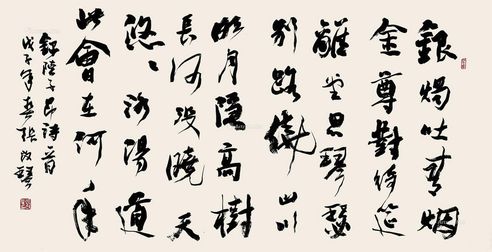 銀燭吐青煙
金尊對綺筵
離堂思琴瑟
別路繞山川
明月隱高樹
長河没曉天
悠悠洛陽道
此會在何年
錄陳子昂詩一首
戊子年春張改琴